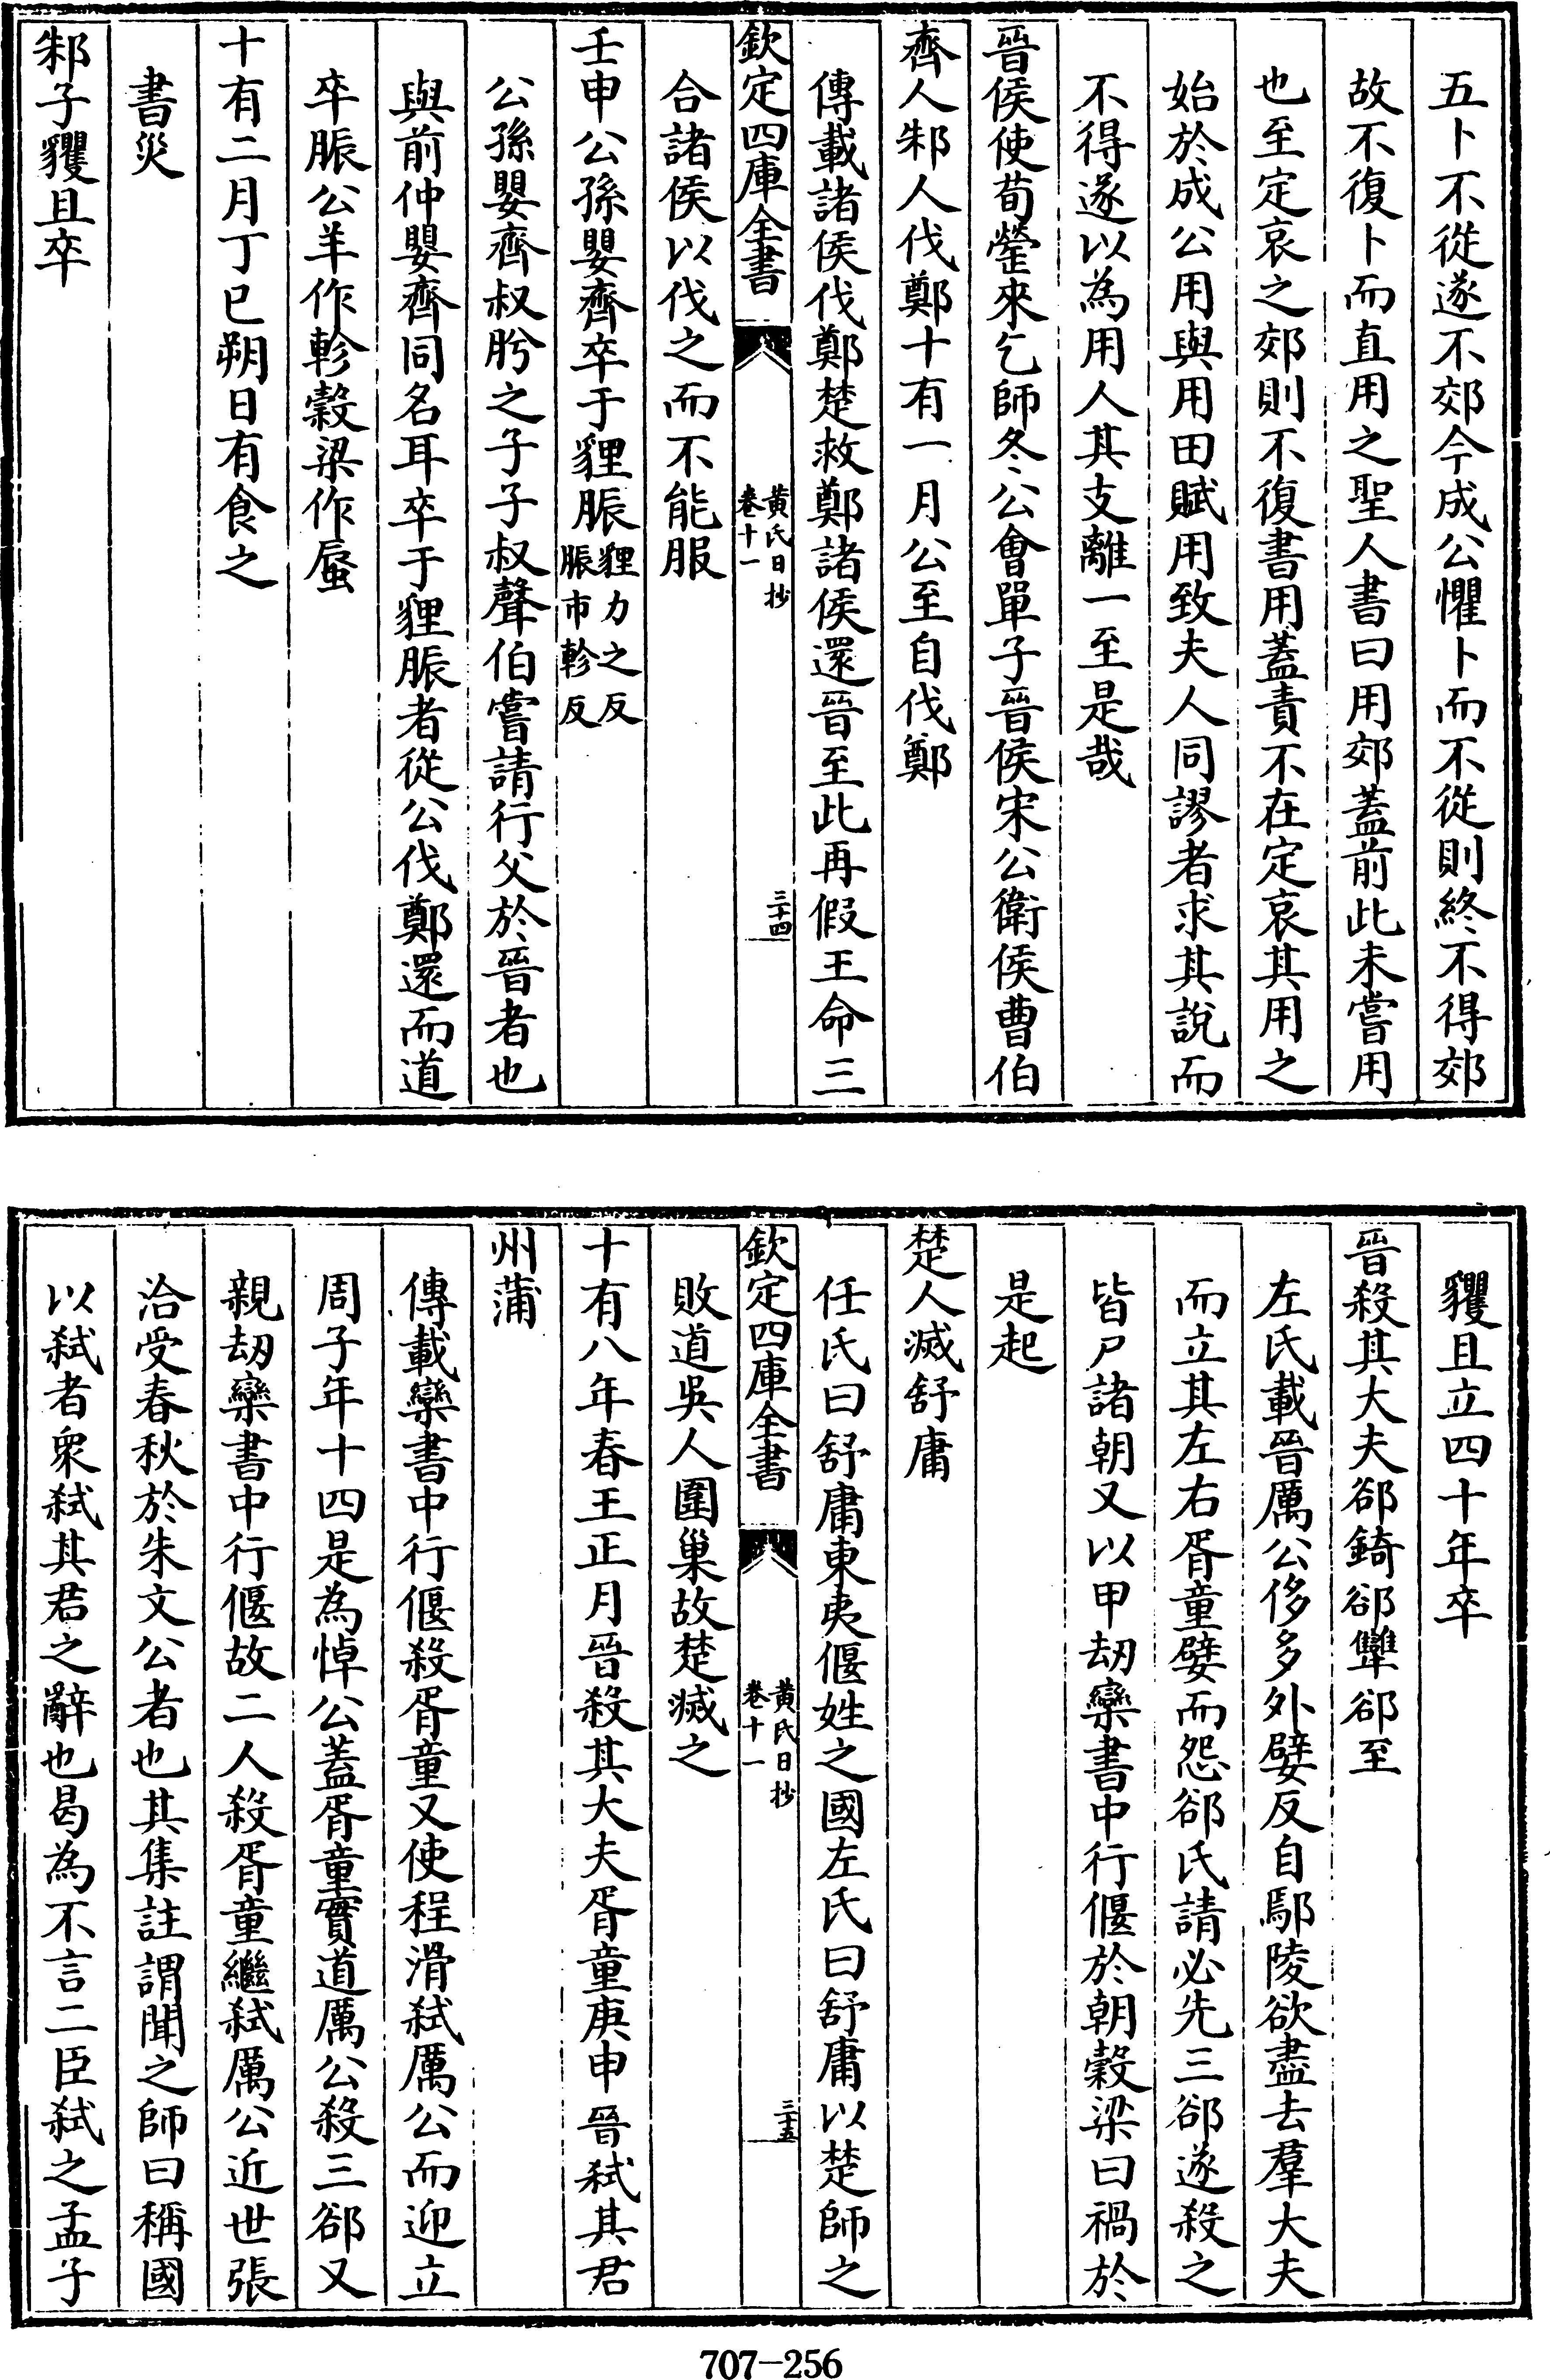 五卜不從遂不郊今成公懼卜而不從則終不得郊
故不復卜而直用之聖人書曰用郊蓋前此未嘗用
也至定哀之郊則不復書用蓋責不在定哀其用之
始於成公用與用田賦用致夫人同謬者求其說而
不得遂以為用人其支離一至是哉
晉侯使荀罃來乞師冬公會單子晉侯宋公衛侯曹伯
齊人邾人伐鄭十有一月公至自伐鄭
傳載諸侯伐鄭楚救鄭諸侯還晉至此再假王命三
欽定四庫全書
黃氏日抄
卷十一
三十四
合諸侯以伐之而不能服
壬申公孫嬰齊卒于貍脤貍力之反
脤市軫反
公孫嬰齊叔肸之子子叔聲伯嘗請行父於晉者也
與前仲嬰齊同名耳卒于貍脤者從公伐鄭還而道
卒脤公羊作軫穀梁作蜃
十有二月丁巳朔日有食之
書災
邾子貜且卒
貜且立四十年卒
晉殺其大夫郤錡郤犨郤至
左氏載晉厲公侈多外嬖反自鄢陵欲盡去羣大夫
而立其左右胥童嬖而怨郤氏請必先三郤遂殺之
皆尸諸朝又以甲刼欒書中行偃於朝穀梁曰禍於
是起
楚人滅舒庸
任氏曰舒庸東夷偃姓之國左氏曰舒庸以楚師之
欽定四庫全書
黃氏日抄
卷十一
三十五
敗道吳人圍巢故楚滅之
十有八年春王正月晉殺其大夫胥童庚申晉弒其君
州蒲
傳載欒書中行偃殺胥童又使程滑弒厲公而迎立
周子年十四是為悼公蓋胥童實道厲公殺三郤又
親刼欒書中行偃故二人殺胥童繼弒厲公近世張
洽受春秋於朱文公者也其集註謂聞之師曰稱國
以弒者衆弒其君之辭也曷為不言二臣弒之孟子
707-256